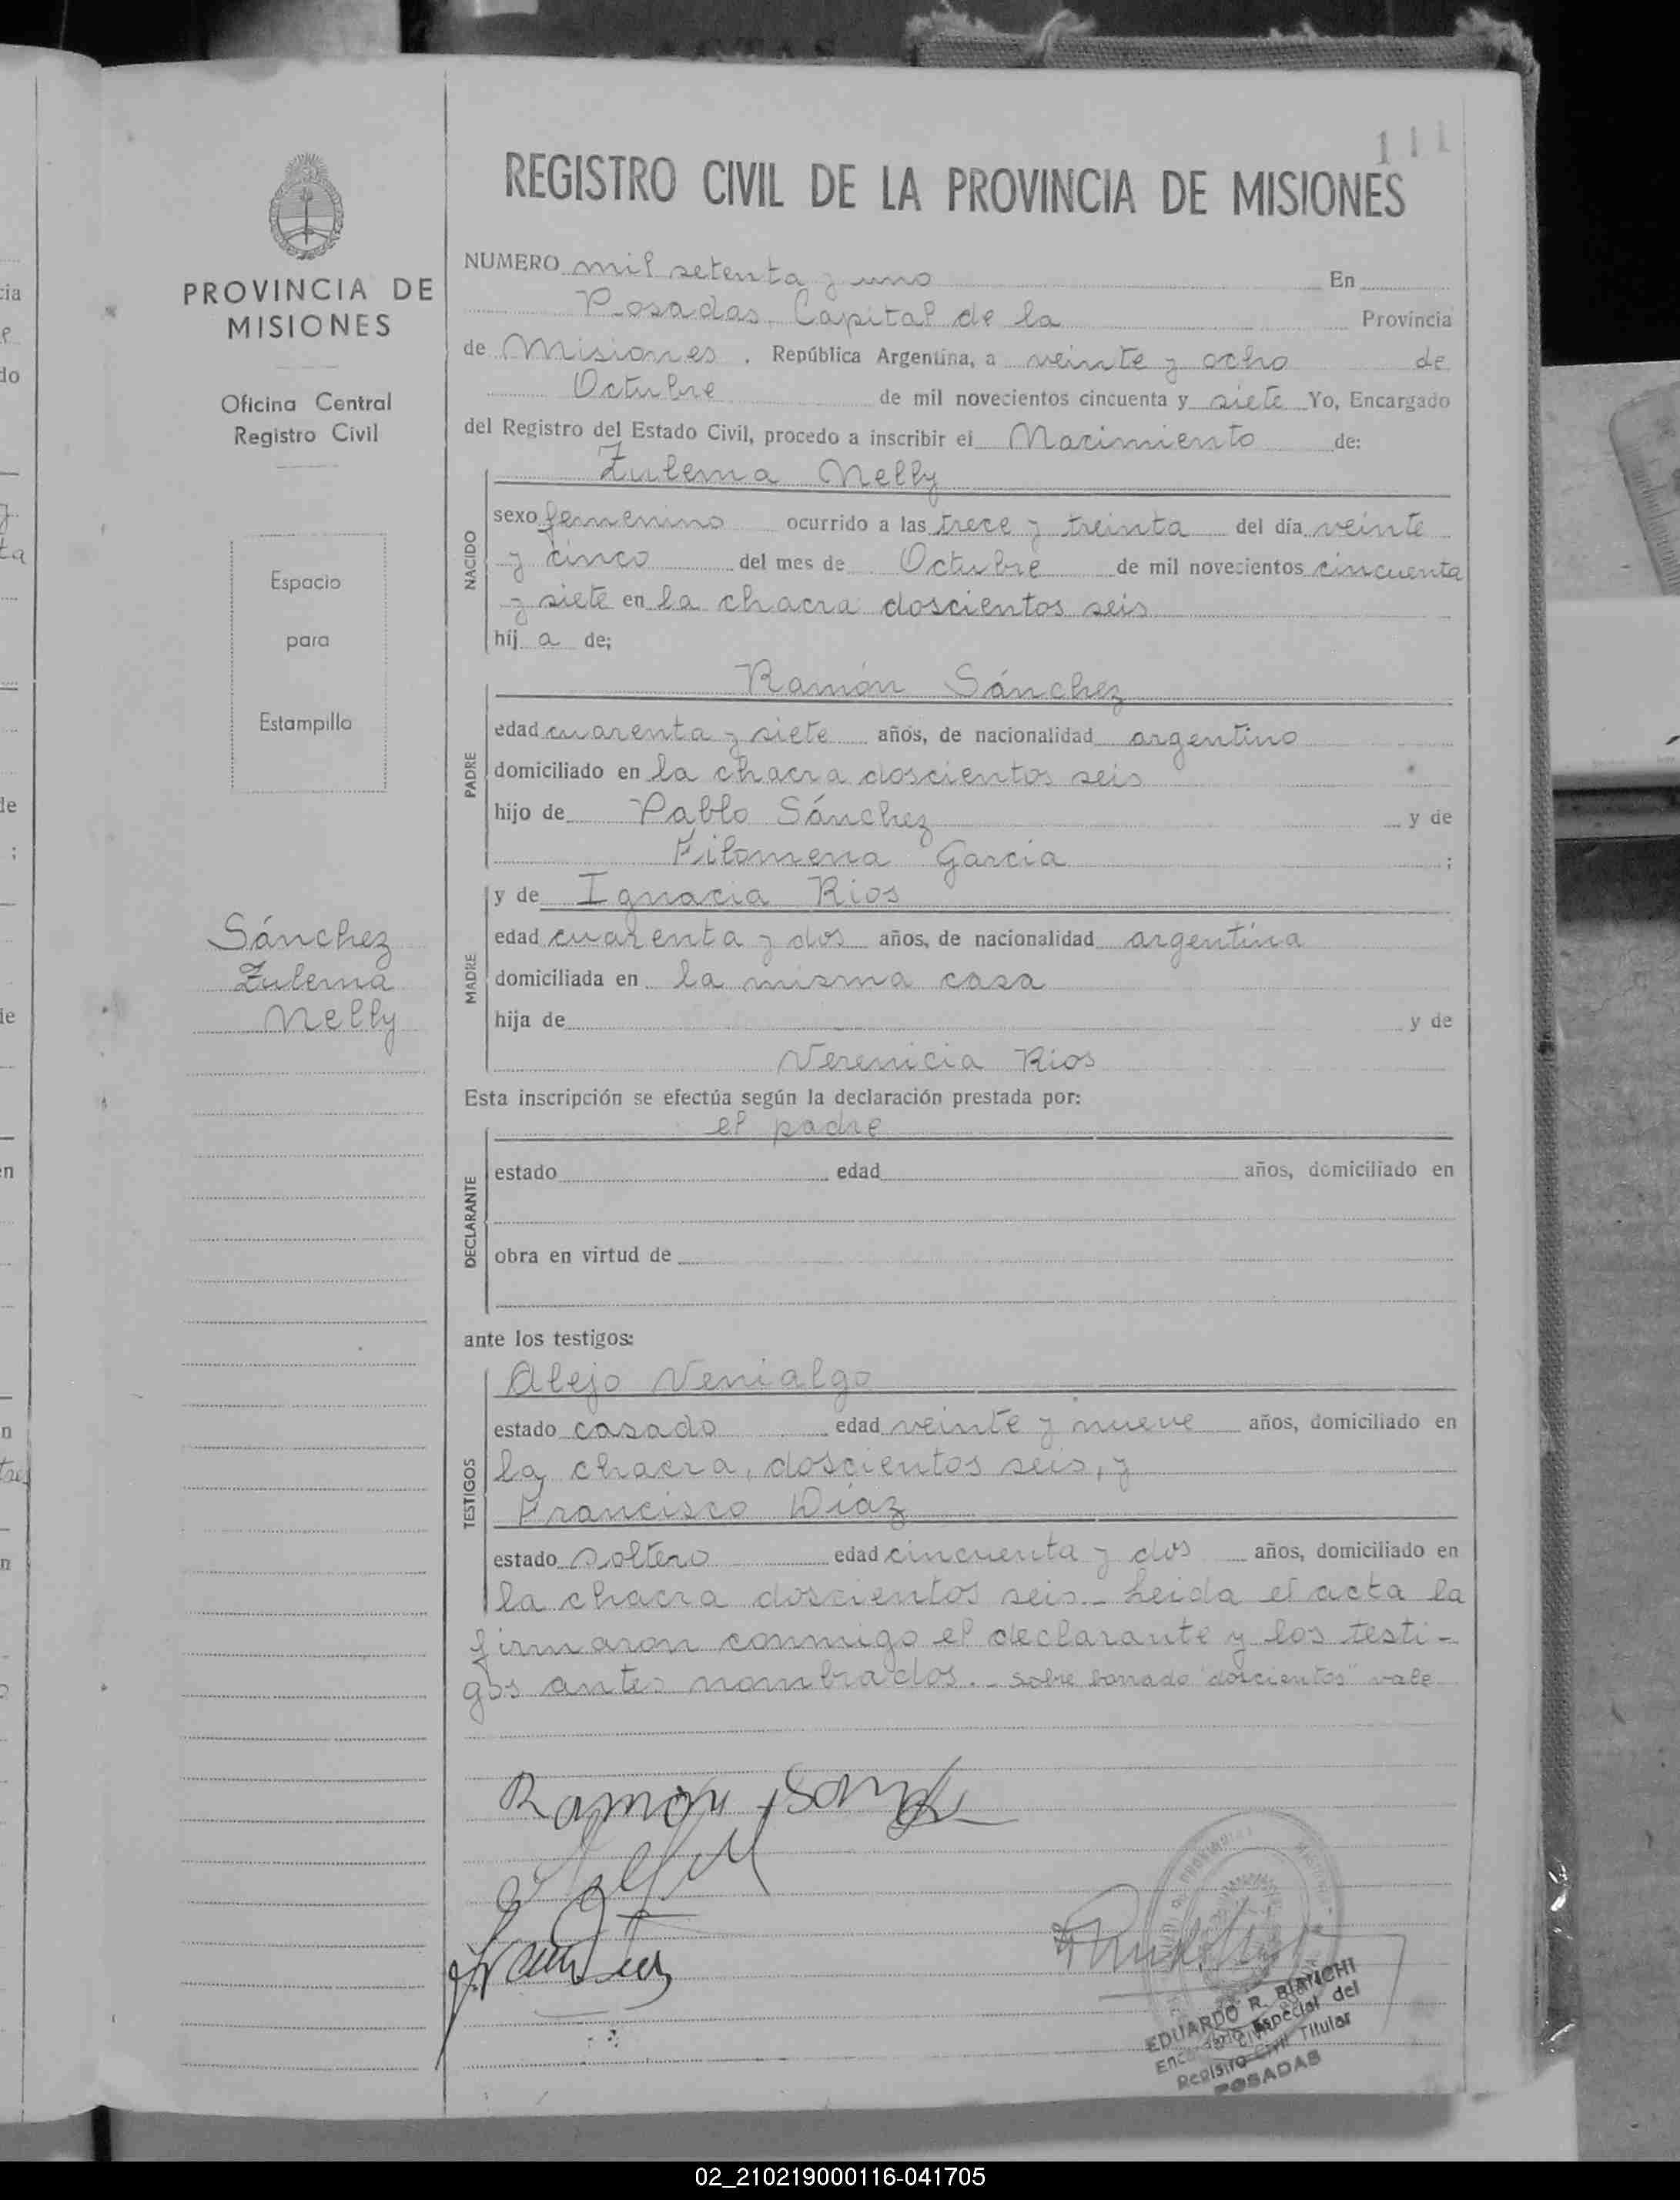 111
REGISTRO CIVIL DE LA PROVINCIA DE MISIONES
PROVINCIA DE
MISIONES
Oficina Central
Registro Civil
Espacio
para
Estampilla
Sánchez
Zulema
Nelly
NUMERO mil setenta y uno En
Posadas, Capital de la Provincia
de Misiones. República Argentina, a veinte y ocho de
Octubre de mil novecientos cincuenta y siete Yo, Encargado
del Registro del Estado Civil, procedo a inscribir el Nacimiento de:
NACIDO
Zulema Nelly
sexo femenino ocurrido a las trece y treinta del día veinte
y cinco del mes de Octubre de mil novecientos cincuenta
y siete en la chacra doscientos seis
hij a de;
PADRE
Ramón Sánchez
edad cuarenta y siete años, de nacionalidad argentino
domiciliado en la chacra doscientos seis
hijo de Pablo Sánchez y de
Filomena García ;
MADRE
y de Ignacia Rios
edad cuarenta y dos años, de nacionalidad argentina
domiciliada en la misma casa
hija de y de
Verenicia Rios
Esta inscripción se efectúa según la declaración prestada por:
DECLARANTE
el padre
estado edad años, domiciliado en
obra en virtud de
ante los testigos:
TESTIGOS
Alejo Venialgo
estado casado edad veinte y nueve años, domiciliado en
la chacra, doscientos seis, y
Francisco Díaz
estado soltero edad cincuenta y dos años, domiciliado en
la chacra doscientos seis - Leida el acta la
firmaron conmigo el declarante y los testi-
gos antes nombrados. - Sobre borrado "doscientos" vale
Ramón
EDUARDO R. BIANCHI
Especial del
Registro Civil Titular
POSADAS
02_210219000116-041705